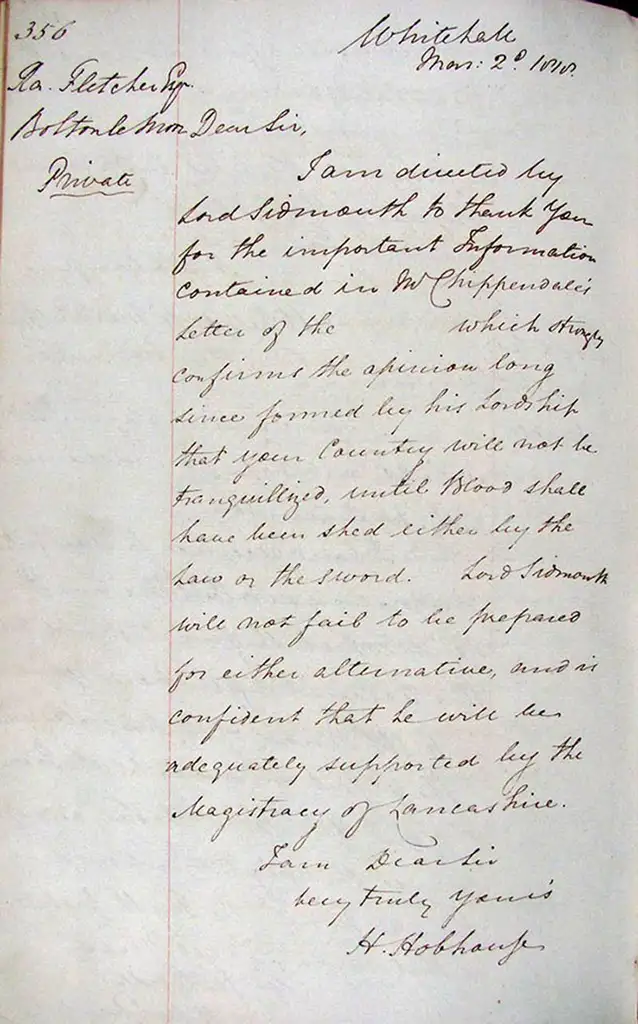 356
Whitehall
Mar: 2d.
Ra. Fletcher Esqr.
Bolton le Moor Dear Sir,
Private
I am directed by
Lord Sidmouth to thank You
for the important Information
contained in Mr Chippendale's
Letter of the which strongly
confirms the opinion long
since formed by his Lordship
that your Country will not be
tranquillized, until Blood shall
have been shed either by the
Law or the sword. Lord Sidmouth
will not fail to be prepared
for either alternative, and is
confident that he will be
adequately supported by the
Magistracy of Lancashire.
I am Dear Sir
very truly Yours
H. Hobhouse